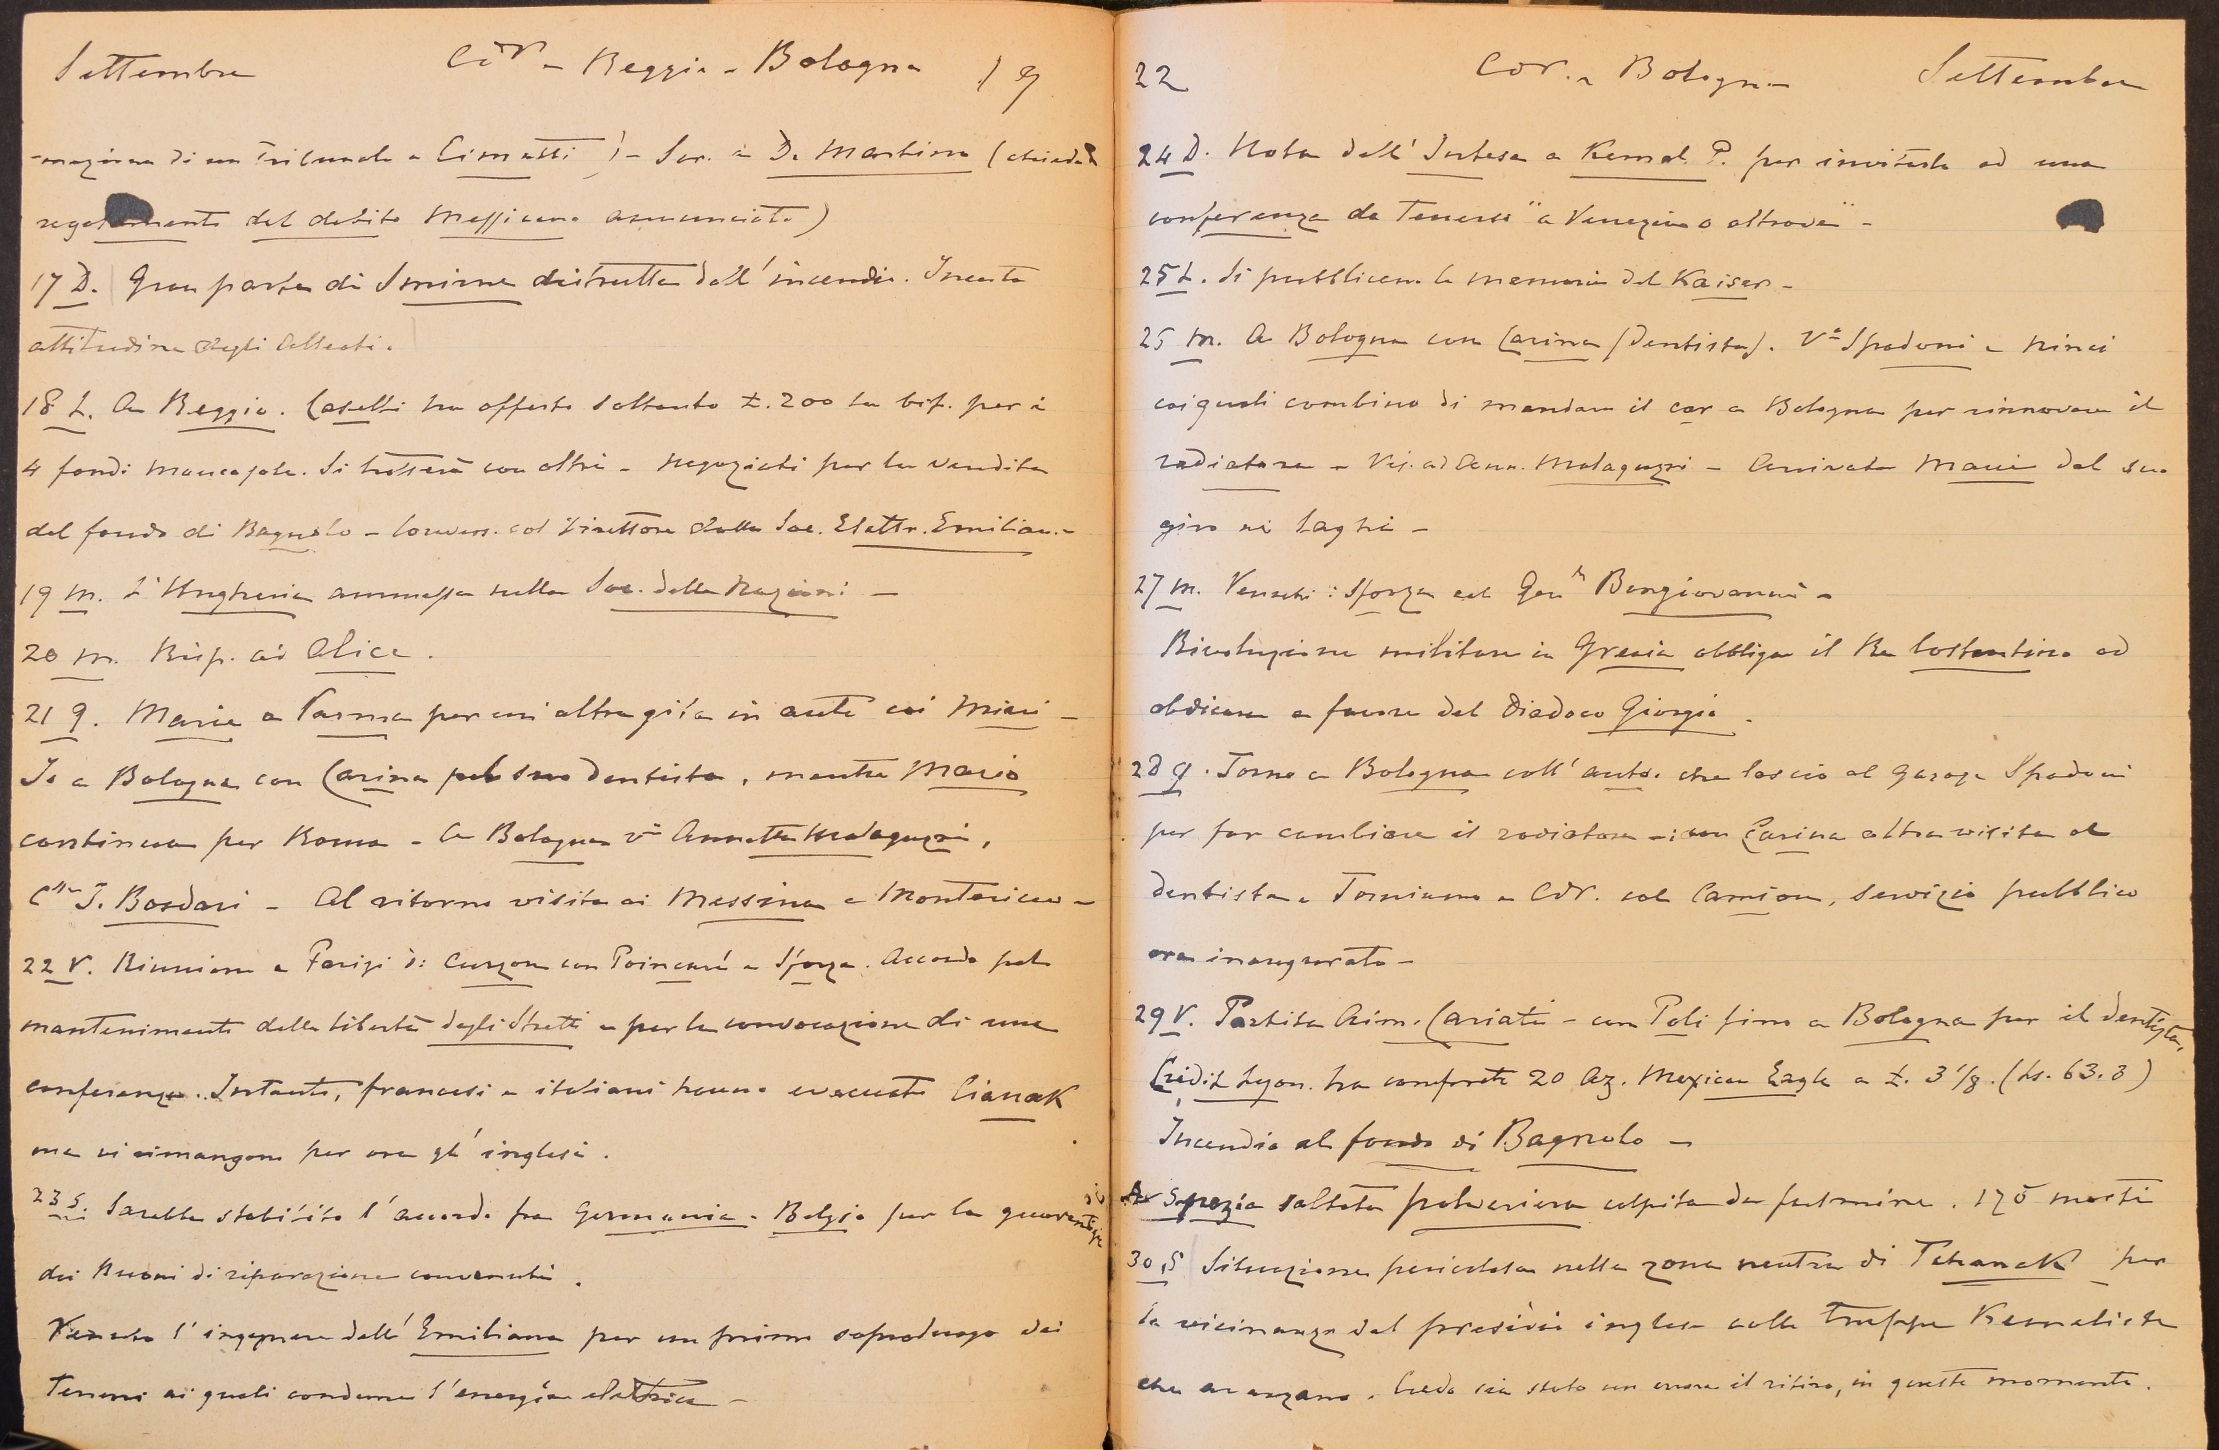 Settembre CdV - Reggio - Bologna 19
-mazione di un Tribunale a Cimatti) - Scr. a De Martino (chieder
regolamento del debito Messicano annunciato)
17 D. Gran parte di Smirne distrutta dall'incendio. Incerta
attitudine degli Alleati.
18 L. A Reggio. Caselli ha offerto soltanto £. 200 la bif. per i
4 fondi Mancasale. Si tratterà con altri - Negoziati per la vendita
del fondo di Bagnolo - Convers. col Direttore della Soc. Elettr. Emilian. -
19 M. L'Ungheria ammessa nella Soc. delle Nazioni -
20 M. Risp. ad Alice.
21 G. Marie a Parma per un'altra gita in auto coi Mimi -
Io a Bologna con Carina pel suo dentista, mentre Mario
continua per Roma - A Bologna va Annetta Malaguzzi,
Cssa J. Bosdari - Al ritorno visita ai Messina a Montericco -
22 V. Riunione a Parigi di Curzon con Poincaré e Sforza. Accordo pel
mantenimento della libertà degli Stretti e per la convocazione di una
conferenza. Intanto, francesi e italiani hanno evacuato Cianak
ma vi rimangono per ora gl'inglesi.
23 S. Sarebbe stabilito l'accordo fra Germania e Belgio per la guarentigia
dei Buoni di riparazione convenuti.
Venuto l'ingegnere dell'Emiliana per un primo sopraluogo dei
terreni ai quali condurre l'energia elettrica -
22 CdV. - Bologna - Settembre
24 D. Nota dell'Intesa a Kemal P. per invitarlo ad una
conferenza da tenersi "a Venezia o altrove" -
25 L. Si pubblicano le memorie del Kaiser -
25 M. A Bologna con Carina (Dentista). Va Spadoni e Ninci
coi quali combino di mandare il car a Bologna per rinnovare il
radiatore - Vis. ad Ann. Malaguzzi - Arrivata Marie dal suo
giro ai laghi -
27 M. Venuti: Sforza col Gen. Bongiovanni -
Rivoluzione militare in Grecia obbliga il Re Costantino ad
abdicare a favore del Diadoco Giorgio.
28 G. Torno a Bologna coll'auto. che lascio al garage Spadoni
per far cambiare il radiatore -: con Carina altra visita al
dentista e Torniamo a CdV. col Camion, servizio pubblico
ora inaugurato -
29 V. Partita Aim. Cariati - con Poli fino a Bologna per il dentista,
Crédit Lyon. ha comprate 20 Az. Mexican Eagle a £. 3 1/8. (Ls. 63.8)
Incendio al fondo di Bagnolo -
A Spezia saltata polveriera colpita da fulmine. 170 morti
30 S. Situazione pericolosa nella zona neutra di Tchanak per
la vicinanza del presidio inglese colle truppe Kemaliste
che avanzano. Credo sia stato un errore il ritiro, in questo momento.